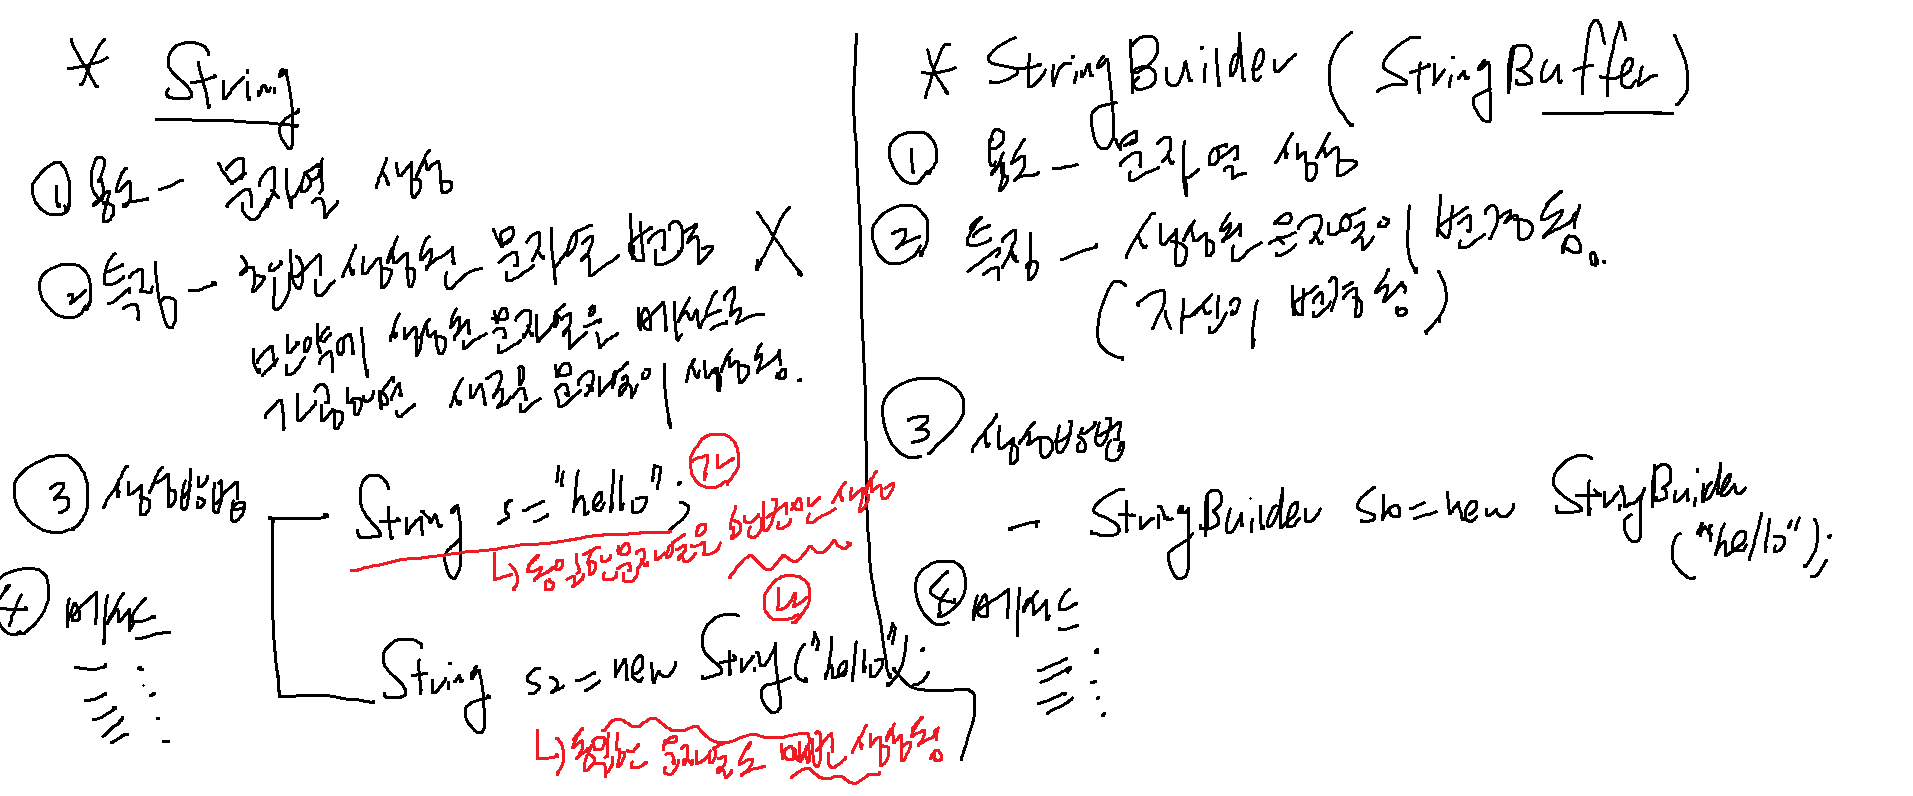 * String
① 용도 - 문자열 생성
② 특징 - 한번 생성된 문자열 변경 X
만약에 생성된 문자열은 메서드로
가공하면 새로운 문자열이 생성됨.
③ 생성방법
String s = "hello"; 가
↳ 동일한 문자열은 한번만 생성
나
String s2 = new String("hello");
↳ 동일한 문자열도 매번 생성됨
④ 메서드
* StringBuilder ( StringBuffer )
① 용도 - 문자열 생성
② 특징 - 생성된 문자열이 변경됨.
( 자신이 변경됨 )
③ 생성방법
- StringBuilder sb = new StringBuilder
("hello");
④ 메서드